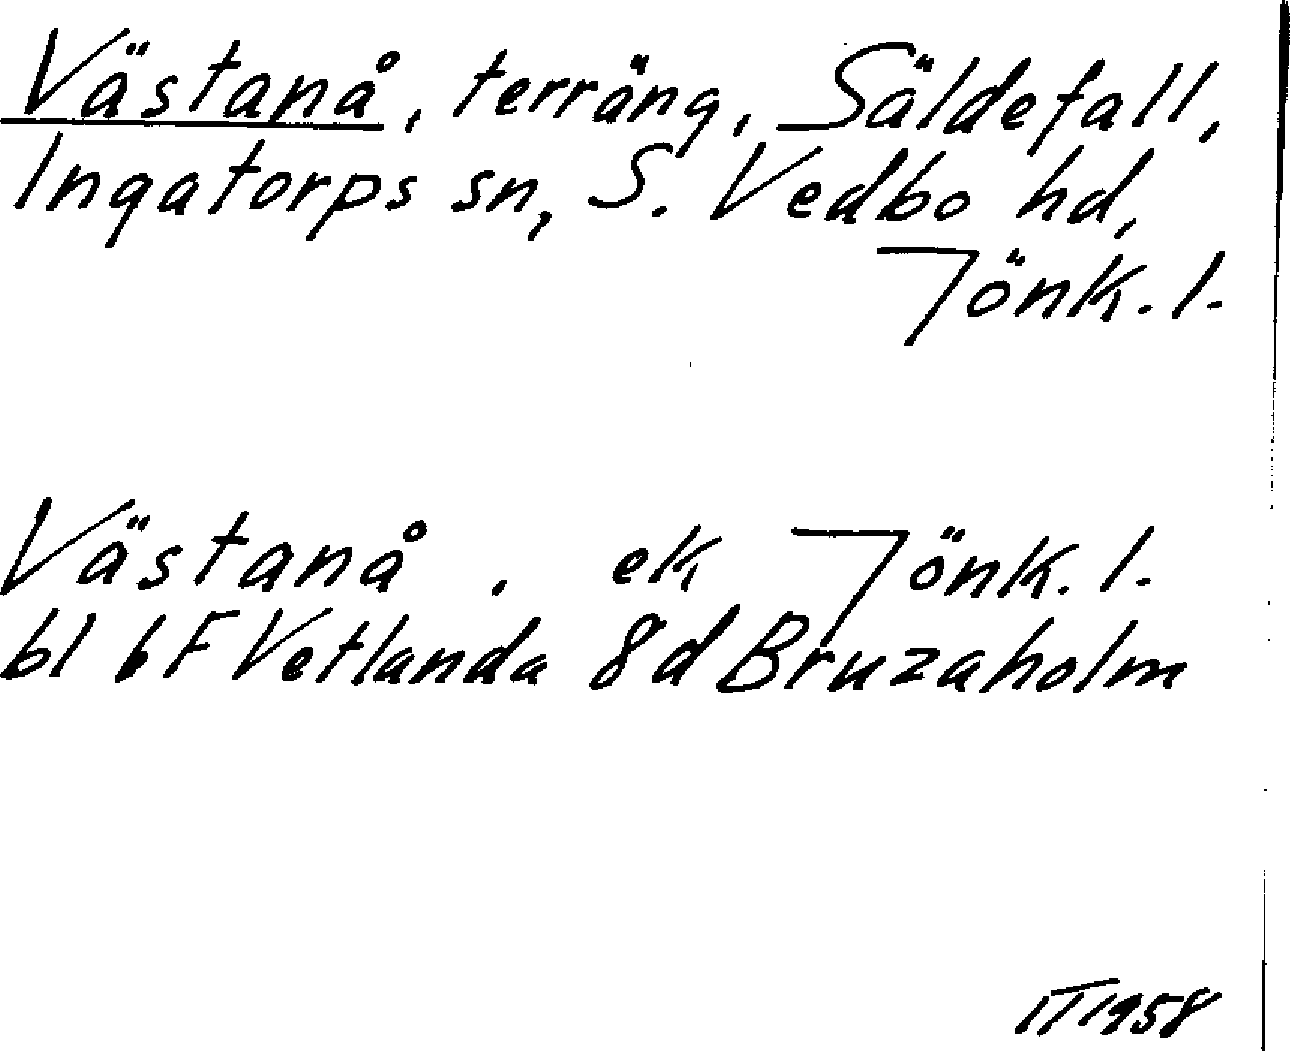 Västanå, terräng, Säldefall,
Ingatorps sn, S. Vedbo hd,
Jönk. l.
Västanå . ek Jönk. l.
bl 6F Vetlanda 8d Bruzaholm
IT 1958